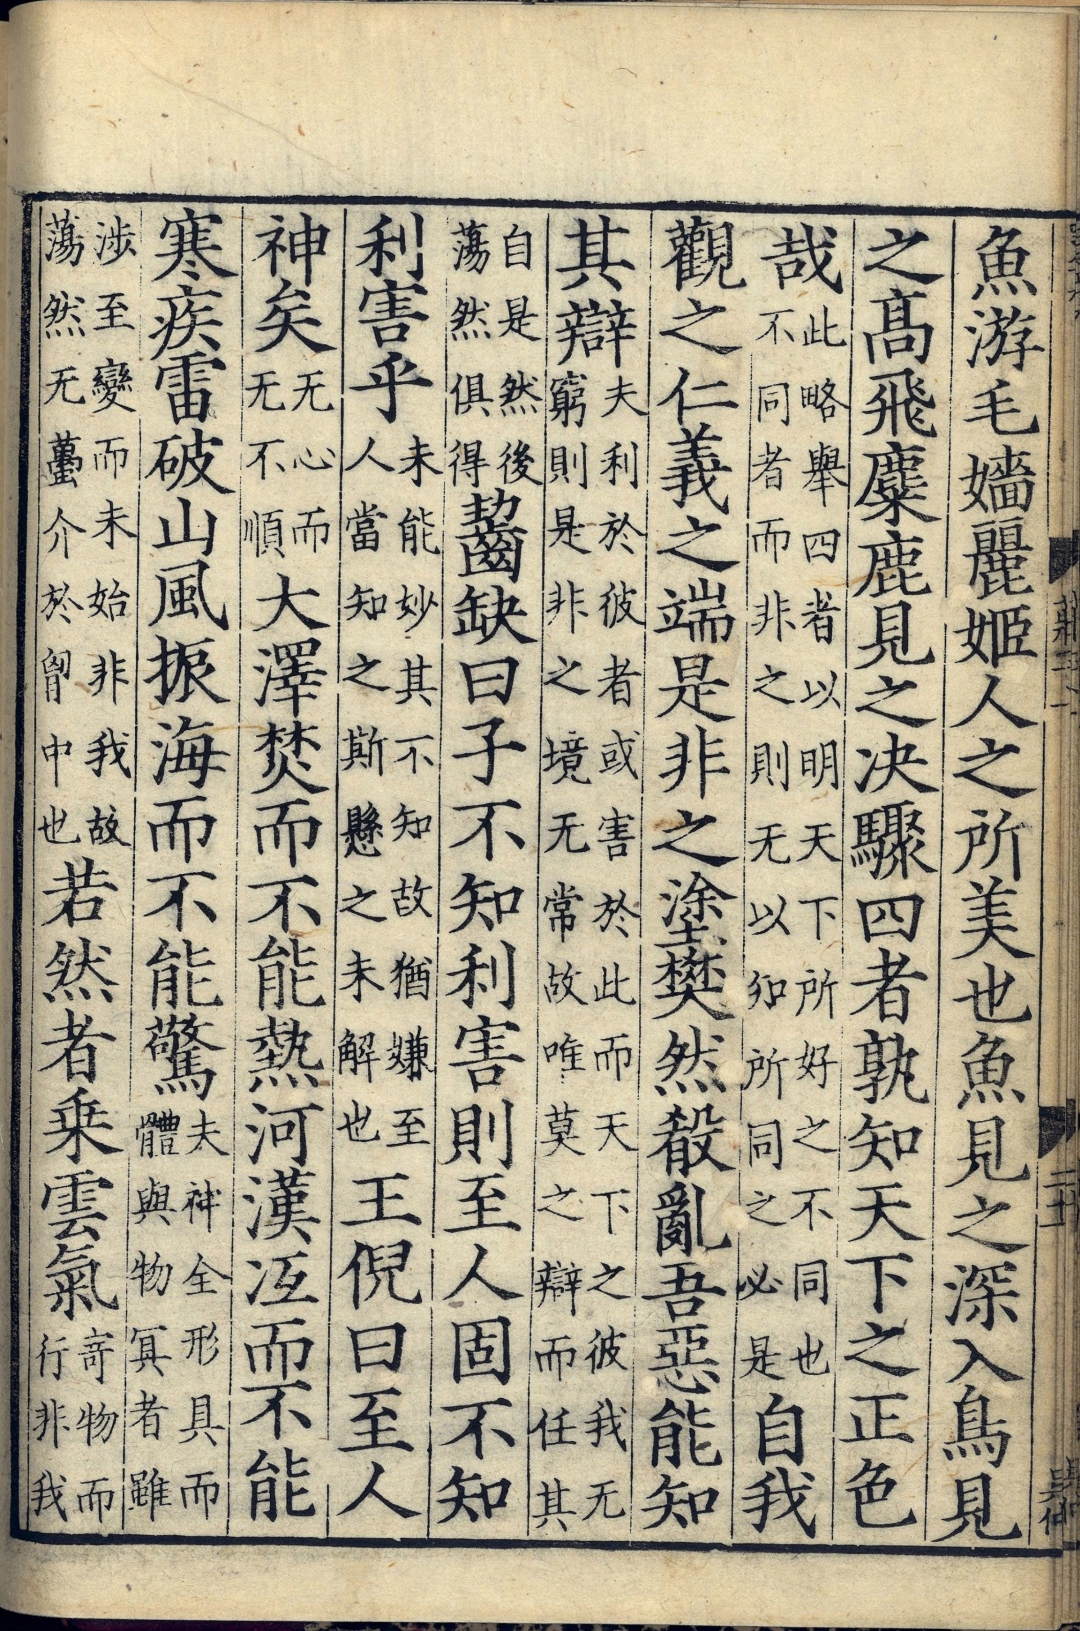 魚游毛嬙麗姬人之所美也魚見之深入鳥見
之髙飛麋鹿見之决驟四者孰知天下之正色
哉此略舉四者以明天下所好之不同也不同者而非之則无以知所同之必是自我
觀之仁義之端是非之塗樊然殽亂吾惡能知
其辯夫利於彼者或害於此而天下之彼我无窮則是非之境无常故唯莫之辯而任其
自是然後蕩然俱得齧缺曰子不知利害則至人固不知
利害乎未能妙其不知故猶嫌至人當知之斯懸之未解也王倪曰至人
神矣无心而无不順大澤焚而不能熱河漢沍而不能
寒疾雷破山風振海而不能驚夫神全形具而體與物冥者雖
涉至變而未始非我故蕩然无蠆介於胷中也若然者乗雲氣寄物而行非我